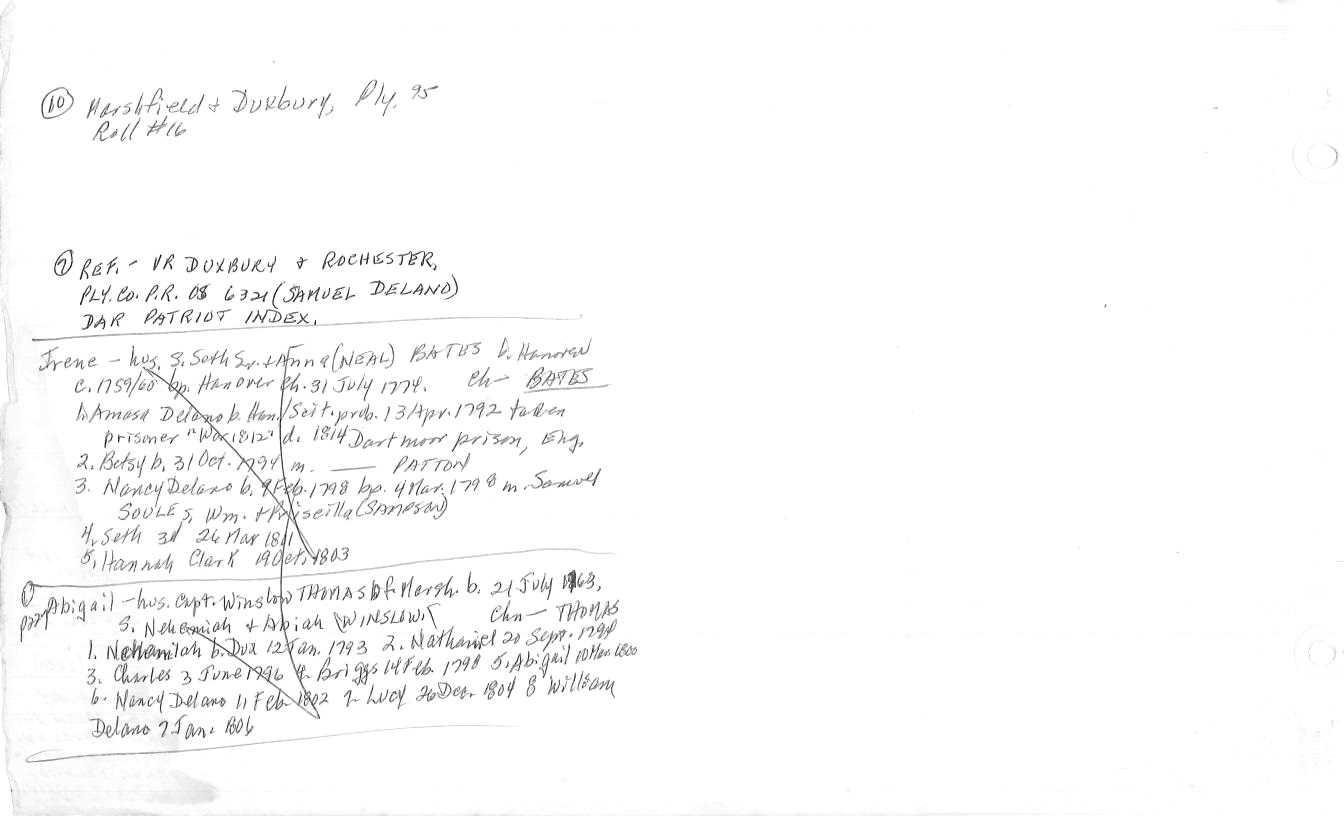 (10) Marshfield & Duxbury, Ply. 95
Roll #16
(7) REF. - VR DUXBURY & ROCHESTER,
PLY. CO. P.R. 08 6321 (SAMUEL DELANO)
DAR PATRIOT INDEX.
Irene - hus. S. Seth Sr. & Anna (NEAL) BATES b. Hanover
c. 1759/60 bp. Hanover Ch. 31 July 1774. Ch - BATES
1. Amasa Delano b. Han./Scit. prob. 13 Apr. 1792 taken
prisoner "War 1812" d. 1814 Dartmoor prison, Eng.
2. Betsy b. 31 Oct. 1794 m. — PATTON
3. Nancy Delano b. 9 Feb. 1798 bp. 4 Mar. 1798 m. Samuel
SOULE S, Wm. & Priscilla (SAMPSON)
4. Seth 3d 26 Mar 1801
5. Hannah Clark 19 Oct. 1803
Abigail - hus. Capt. Winslow THOMAS of Marsh. b. 21 July 1763,
S. Nehemiah & Abiah (WINSLOW) Chn - THOMAS
1. Nehemiah b. Dux 12 Jan. 1793 2. Nathaniel 20 Sept. 1794
3. Charles 3 June 1796 4. Briggs 14 Feb. 1798 5. Abigail 10 Mar. 1800
6. Nancy Delano 11 Feb 1802 7. Lucy 26 Dec. 1804 8 William
Delano 7 Jan. 1806